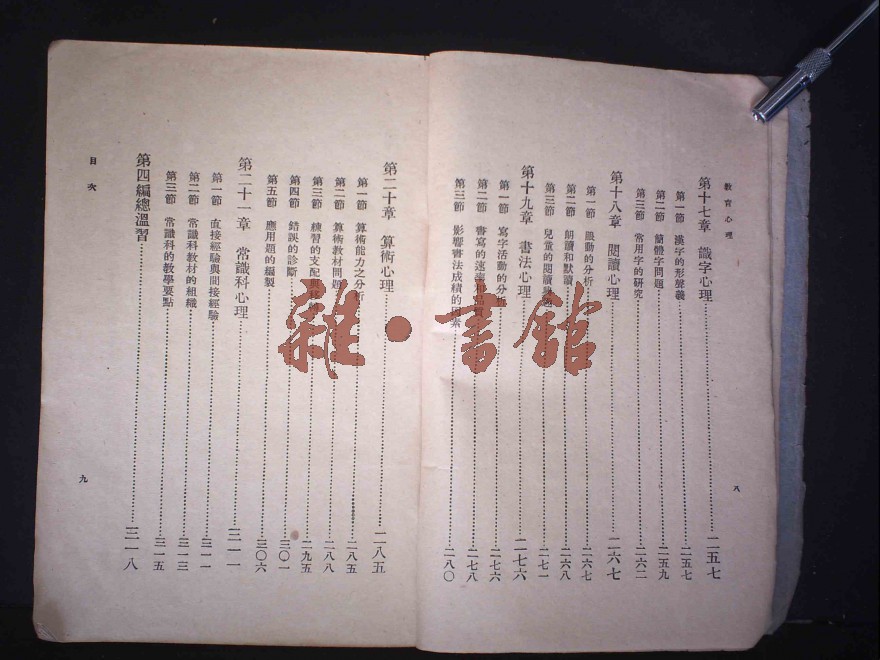 教育心理
第十七章 識字心理……二五七
第一節 漢字的形聲義……二五七
第二節 簡體字問題……二五九
第三節 常用字的研究……二六二
第十八章 閱讀心理……二六七
第一節 眼動的分析……二六七
第二節 朗讀和默讀……二六八
第三節 兒童的閱讀……二七一
第十九章 書法心理……二七六
第一節 寫字活動的分析……二七六
第二節 書寫的速率和品質……二七八
第三節 影響書法成績的因素……二八〇
八
第二十章 算術心理……二八五
第一節 算術能力之分析……二八五
第二節 算術教材問題……二八八
第三節 練習的支配與……二九五
第四節 錯誤的診斷……三〇一
第五節 應用題的編製……三〇六
第二十一章 常識科心理……三一一
第一節 直接經驗與間接經驗……三一一
第二節 常識科教材的組織……三一三
第三節 常識科的教學要點……三一五
第四編總溫習……三一八
目次
九
雜·書館